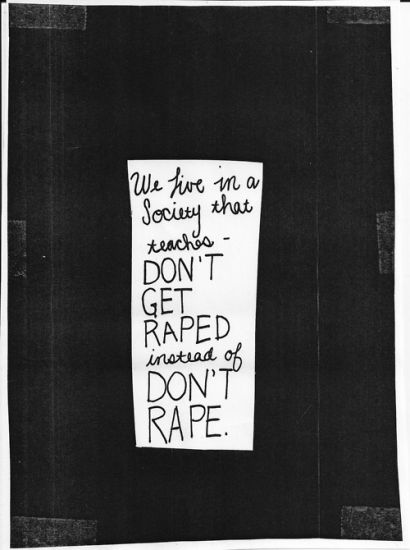 We live in a
Society that
teaches -
DON'T
GET
RAPED
instead of
DON'T
RAPE.